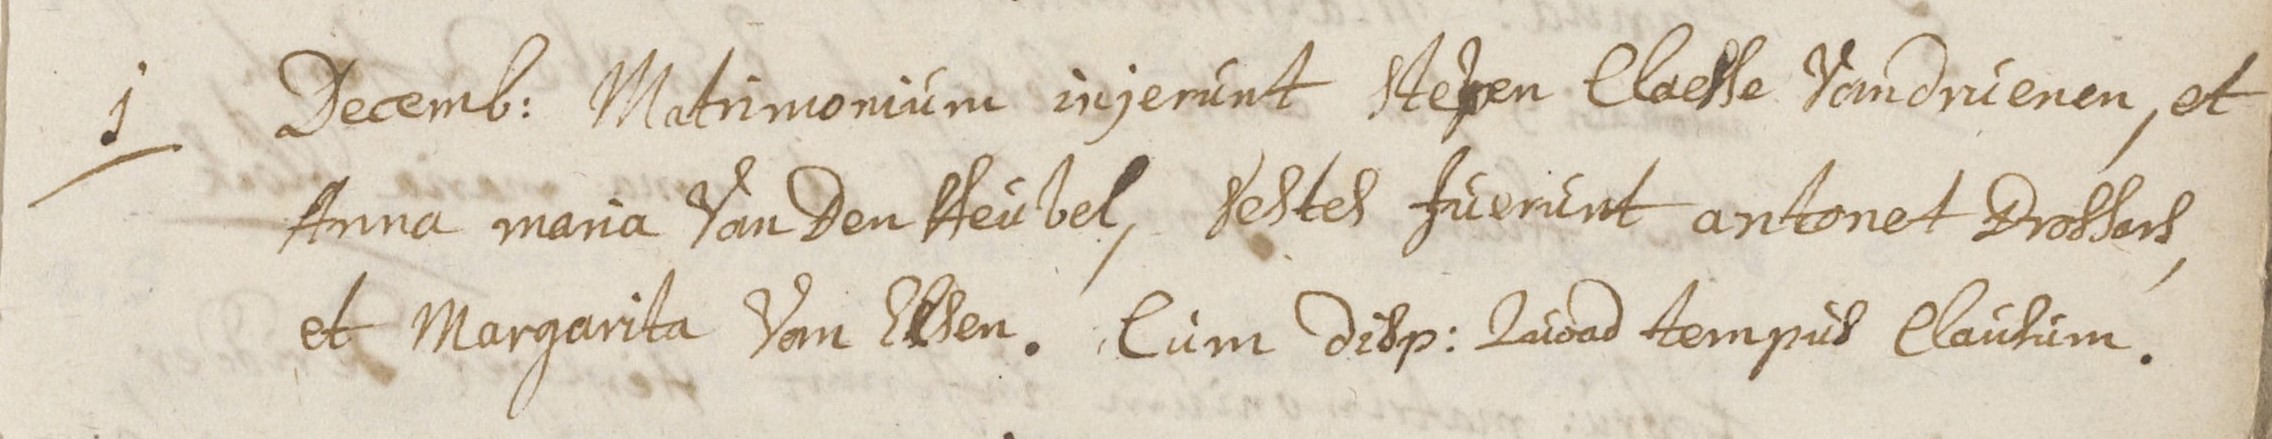 1 Decemb: Matrimonium injerunt Stepen Claesse Vandruenen, et
Anna maria Van Den Heubel, testes fuerunt antonet Drossars,
et Margarita Van Essen. Cum disp: Quoad tempus Clausum.